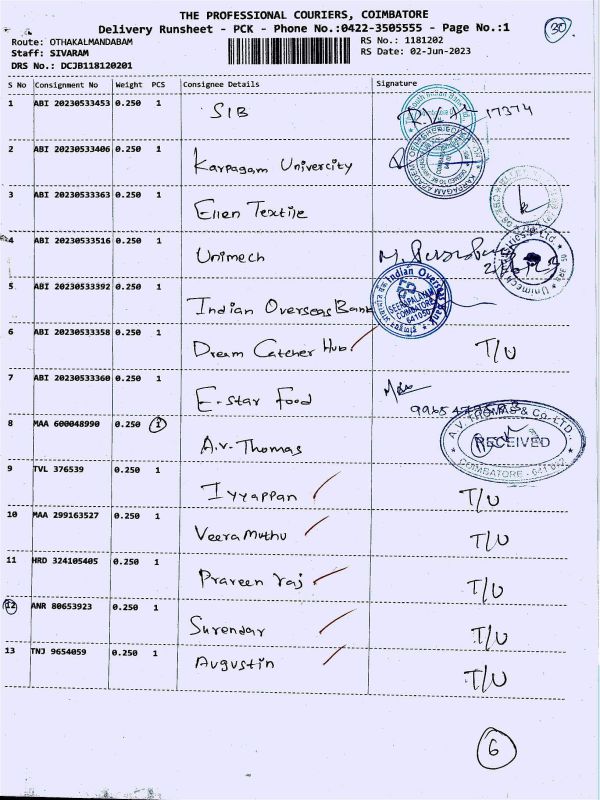 THE PROFESSIONAL COURIERS, COIMBATORE
30
Delivery Runsheet - PCK - Phone No.:0422-3505555 - Page No.:1
Route: OTHAKALMANDABAM
RS No.: 1181202
Staff: SIVARAM
RS Date: 02-Jun-2023
DRS No.: DCJB118120201
S No Consignment No Weight PCS Consignee Details Signature
1 ABI 20230533453 0.250 1 SIB 17374
2 ABI 20230533406 0.250 1 Karpagam Univercity
3 ABI 20230533363 0.250 1 Ellen Textile
4 ABI 20230533516 0.250 1 Unimech
5 ABI 20230533392 0.250 1 Indian Overseas Bank
Indian Overseas Bank
SEERAPALAYAM
COIMBATORE
641050
6 ABI 20230533358 0.250 1 Dream Catcher Hub T/U
7 ABI 20230533360 0.250 1 E-star Food
8 MAA 600048990 0.250 1 A.V. Thomas
A.V. THOMAS & CO. LTD.,
RECEIVED
COIMBATORE - 641 022
9 TVL 376539 0.250 1 Iyyappan T/U
10 MAA 299163527 0.250 1 Veeramuthu T/U
11 HRD 324105405 0.250 1 Praveen raj T/U
12 ANR 80653923 0.250 1 Surendar T/U
13 TNJ 9654059 0.250 1 Augustin T/U
6